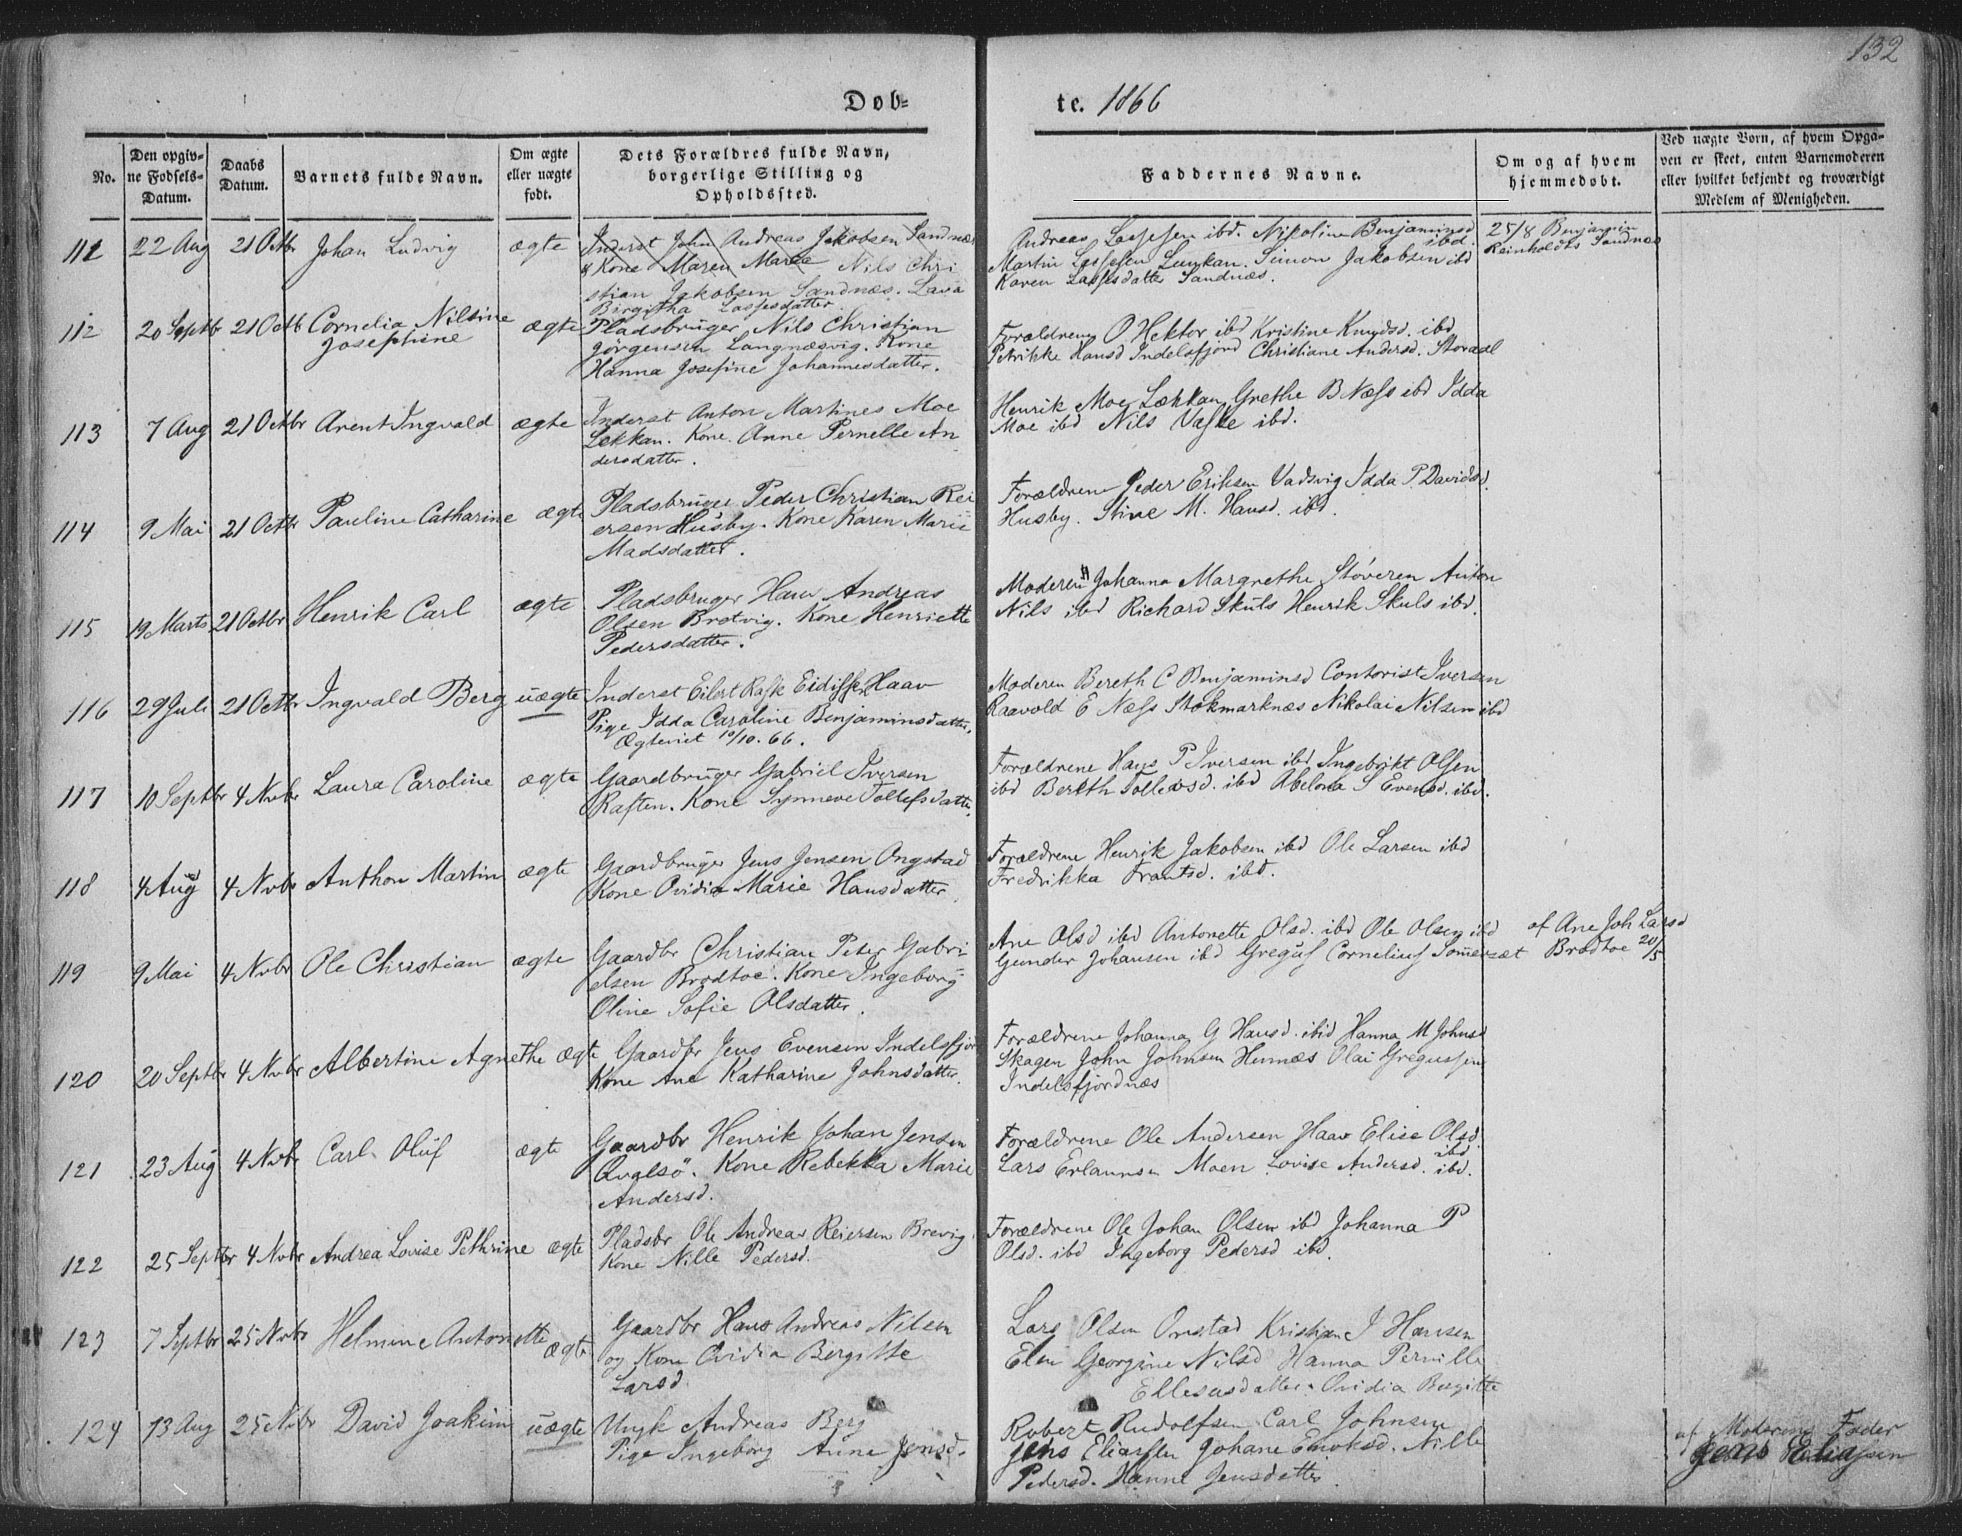 132
Døb-
te. 1866
No.
Den opgiv-
ne Fødsels-
Datum.
Daabs
Datum.
Barnets fulde Navn.
Om ægte
eller uægte
født.
Dets Forældres fulde Navn,
borgerlige Stilling og
Opholdssted.
Faddernes Navne.
Om og af hvem
hjemmedøbt.
Ved uægte Børn, af hvem Opga-
ven er skeet, enten Barnemoderen
eller hvilket bekjendt og troværdigt
Medlem af Menigheden.
111 22 Aug 21 Octbr Johan Ludvig ægte
Inderst John Andreas Jakobsen Sandnæs
& Kone Maren Nils Chri
stian Jakobsen Sandnæs. Lava
Birgitha Lassesdatter
Andreas Lassesen ibd. Nikoline Benjaminsd
ibd.
Martin Lassesen Simon Jakobsen ibd
Karen Lassesdatter Sandnæs.
25/8 Benjamin
Reinholdts Sandnæs
112 20 Septbr 21 Octb Cornelia Nilsine
Josephine
ægte
Pladsbruger Nils Christian
Jörgensen Langnæsvig. Kone
Hanna Josefine Johannesdatter.
Forældrene O Hektor ibd Kristine Knudsd. ibd
Petrikke Hansd Indelsfjord Christiane Andersd. Storaal
113 7 Aug 21 Octbr Arent Ingvald ægte
Inderst Anton Martines Moe
Løkkan. Kone. Anne Pernelle An
dersdatter.
Henrik Moe Løkkan Grethe B Næss ibd Idda
Moe ibd Nils ibd.
114 9 Mai 21 Octbr Pauline Catharine ægte
Pladsbruger Peder Christian Rei
ersen Husby. Kone Karen Marie
Madsdatter.
Forældrene Peder Eriksen Vadsvig Idda P Davidsd.
Husby. Stine M. Hansd. ibd.
115 19 Marts 21 Octbr Henrik Carl ægte
Pladsbruger Hans Andreas
Olsen Brotvig. Kone Henriette
Pedersdatter.
Moderen Johanna Margrethe Støveren Anton
Nils ibd Richard Skuls Henrik Skuls ibd.
116 29 Juli 21 Octbr Ingvald Berg uægte
Inderst Eilert Rask Eidissen Haav
Pige Idda Caroline Benjaminsdatter.
Ægteviet 10/10. 66.
Moderen Bereth C Benjaminsd Contorist Iversen
Raavold E Næss Stokmarknæs Nikolai Nilsen ibd
117 10 Septbr 4 Nvbr Laura Caroline ægte
Gaardbruger Gabriel Iversen
Raften. Kone Synneve Tollefsdatter.
Forældrene Hans P Iversen ibd Ingebrikt Olsen
ibd Bereth Tollevsd. ibd Abelona S Evensd. ibd.
118 4 Aug 4 Nvbr Anthon Martin ægte
Gaardbruger Jens Jensen Ongstad
Kone Ovidia Marie Hansdatter
Forældrene Henrik Jakobsen ibd Ole Larsen ibd
Fredrikka Frantsd. ibd.
119 9 Mai 4 Nvbr Ole Christian ægte
Gaardbr Christian Peter Gabri-
elsen Brødtoe. Kone Ingeborg
Oline Sofie Olsdatter.
Ane Olsd ibd Antonette Olsd. ibd Ole Olsen ibd
Gunder Johansen ibd Gregus Cornelius Sommersæt
af Ane Joh Larsd
Brødtoe 20/5
120 20 Septbr 4 Nvbr Albertine Agnethe ægte
Gaardbr Jens Evensen Indelsfjor
Kone Ane Katharine Johnsdatter.
Forældrene Johanna G Hansd. ibid Hanna M Johnsd
Skagen John Johnsen Hennæs Olai Gregussen
Indelsfjordnæs
121 23 Aug 4 Nvbr Carl Oluf ægte
Gaardbr Henrik Johan Jensen
Qvalsö. Kone Rebekka Marie
Andersd.
Forældrene Ole Andersen Haav Elise Olsd.
ibd
Lars Erlaunsen Moen Lovise Andersd. ibd.
122 25 Septbr 4 Nvbr Andrea Lovise Pethrine ægte
Pladsbr Ole Andreas Reiersen Brevig
Kone Nille Pedersd.
Forældrene Ole Johan Olsen ibd Johanna P
Olsd. ibd Ingeborg Pedersd ibd.
123 7 Septbr 25 Nvbr Helmine Antonette ægte
Gaardbr Hans Andreas Nilsen
og Kone Ovidia Bergitte
Larsd
Lars Olsen Onstad Kristian J Hansen
Elen Georgine Nilsd Hanna Pernille
Ellesusdatter. Ovidia Bergitte
124 13 Aug 25 Nvbr David Joakim uægte
Ungk Andreas Berg
Pige Ingeborg Anne Jensd.
Robert Rudolfsen Carl Johnsen
Jens Eliassen Johane Enoksd. Nille
Pedersd. Hanne Jensdatter
af Moderens Fader
Jens Eliassen